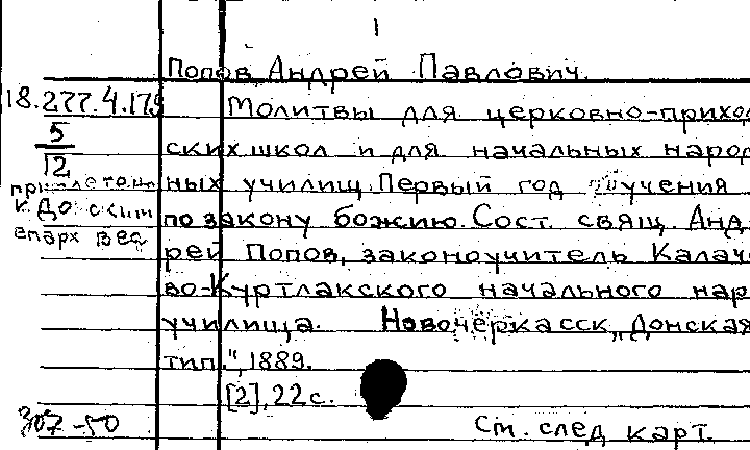 1
Попов Андрей Павлович.
18.277.4.175 Молитвы для церковно-приход
5 ских школ и для начальных народ
12
приплетено ных училищ. Первый год обучения
к Донским по закону божию. Сост. свящ. Анд
епарх вед рей Попов, законоучитель Калаче
во-Куртлакского начального нар
училища. Новочеркасск, „Донская
тип.", 1889.
[2], 22 с.
307-50 См. след карт.